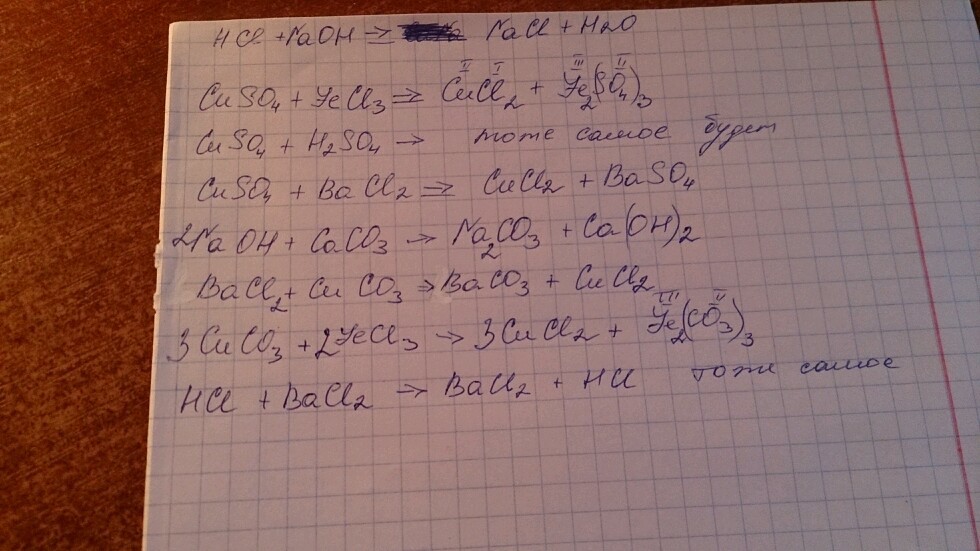 HCl + NaOH ⇒ NaCl + H2O
CuSO4 + FeCl3 ⇒ CuCl2 + Fe2(SO4)3
CuSO4 + H2SO4 → тоже самое будет
CuSO4 + BaCl2 ⇒ CuCl2 + BaSO4
2NaOH + CaCO3 → Na2CO3 + Ca(OH)2
BaCl2 + CuCO3 → BaCO3 + CuCl2
3CuCO3 + 2FeCl3 → 3CuCl2 + Fe2(CO3)3
HCl + BaCl2 → BaCl2 + HCl тоже самое